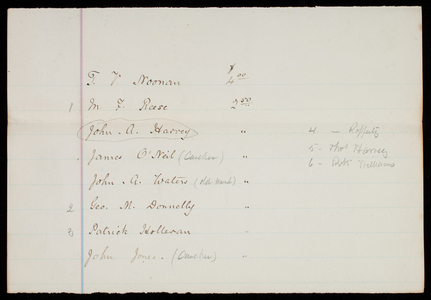 T. V. Noonan $4.00
1 M. F. Reese 2.50
John. A. Harvey "
James O'Neil (Caucher) "
John. A. Waters (old hand) "
2 Geo. M. Donnelly "
3 Patrick Holleran "
John Jones. (Caucher) "
4 — Rafferty
5 - Thos Harvey
6 - Robt Williams